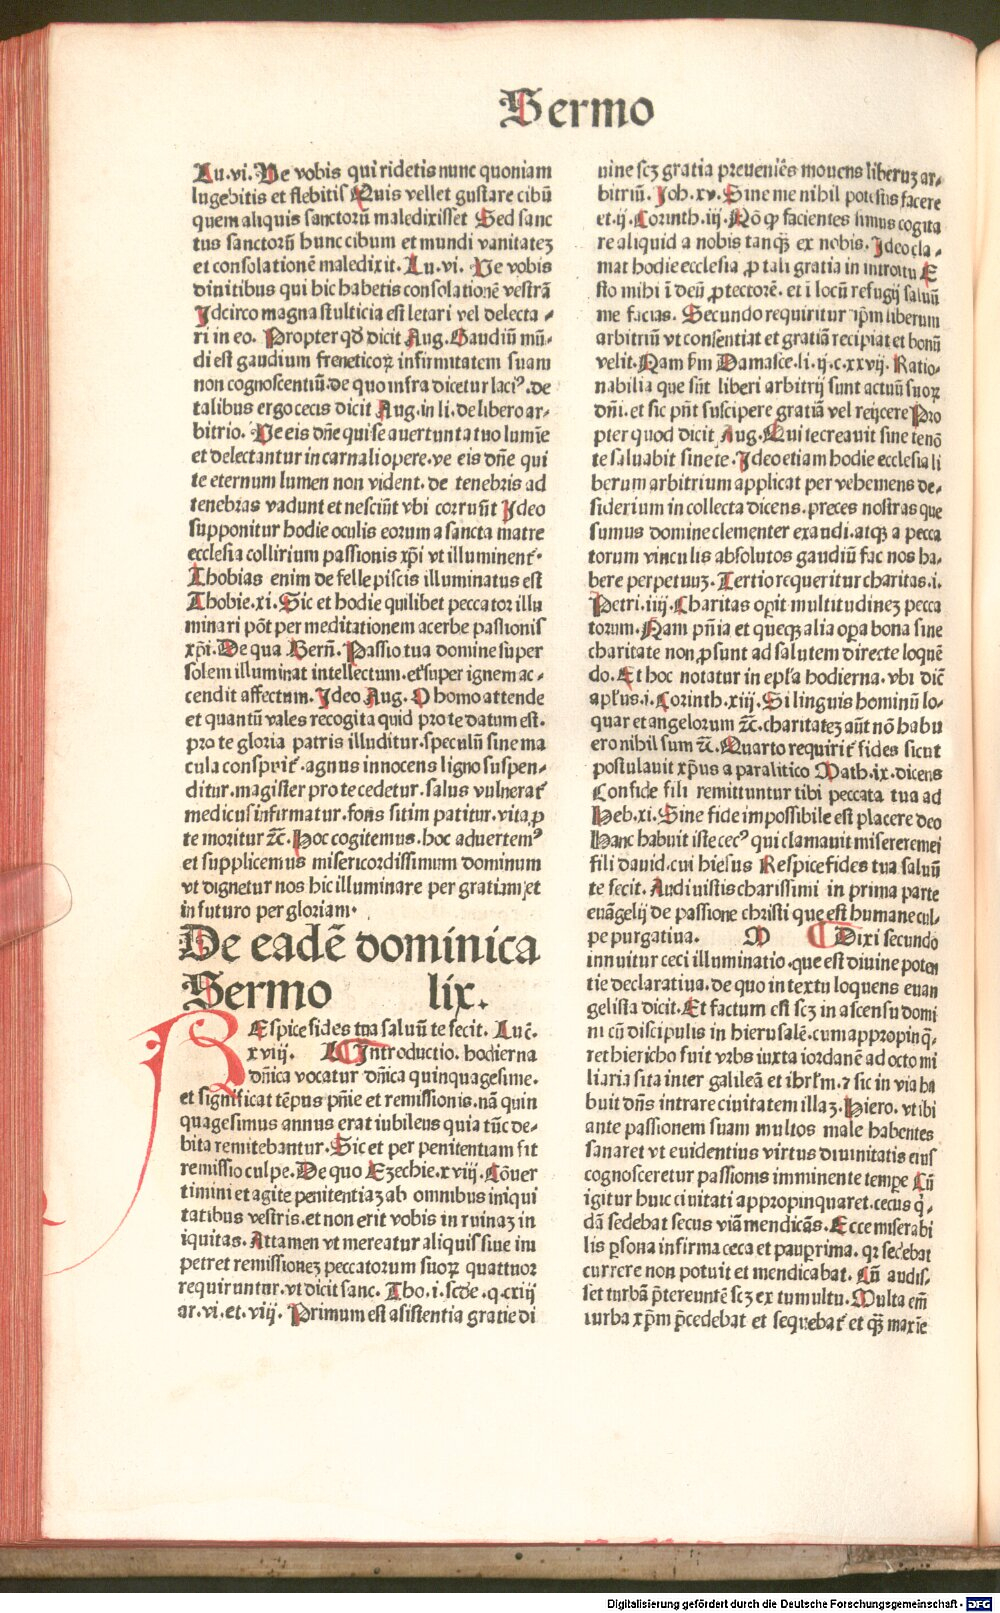 Sermo
Lu.vi. Ve vobis qui ridetis nunc quoniam
lugebitis et flebitis Quis vellet gustare cibū
quem aliquis sanctorū maledixisset Sed sanc
tus sanctorū hunc cibum et mundi vanitatez
et consolationē maledixit. Lu.vi. Ve vobis
diuitibus qui hic habetis consolationē vestrā
Idcirco magna stulticia est letari vel delecta⸗
ri in eo. Propter qd̄ dicit Aug. Gaudiū mū⸗
di est gaudium freneticoꝝ infirmitatem suam
non cognoscentiū.de quo infra dicetur laciꝰ.de
talibus ergo cecis dicit Aug.in li.de libero ar⸗
bitrio. Ve eis dn̄e qui se auertunt a tuo lumīe
et delectantur in carnali opere.ve eis dn̄e qui
te eternum lumen non vident.de tenebris ad
tenebras vadunt et nesciūt vbi corruūt Ideo
supponitur hodie oculis eorum a sancta matre
ecclesia collirium passionis xp̄i vt illuminent̄.
Thobias enim de felle piscis illuminatus est
Thobie.xi. Sic et hodie quilibet peccator illu
minari pōt per meditationem acerbe passionis
xp̄i. De qua Bern̄. Passio tua domine super
solem illuminat intellectum.et super ignem ac⸗
cendit affectum. Ideo Aug. O homo attende
et quantū vales recogita quid pro te datum est.
pro te gloria patris illuditur.speculū sine ma
cula conspuit̄.agnus innocens ligno suspen⸗
ditur.magister pro te cedetur.salus vulnerat̄
medicus infirmatur.fons sitim patitur.vita ꝓ
te moritur ⁊c̄. Hoc cogitemus.hoc aduertemꝰ
et supplicemus misericordissimum dominum
vt dignetur nos hic illuminare per gratiam et
in futuro per gloriam.
De eadē dominica
Sermo lix.
REspice fides tua saluū te fecit. Luc̄.
xviij. L Introductio. hodierna
dn̄ica vocatur dn̄ica quinquagesime.
et significat tēpus pn̄ie et remissionis.nā quin
quagesimus annus erat iubileus quia tūc de⸗
bita remitebantur. Sic et per penitentiam fit
remissio culpe. De quo Ezechie.xviij. Cōuer
timini et agite penitentiaz ab omnibus iniqui
tatibus vestris.et non erit vobis in ruinaz in
iquitas. Attamen vt mereatur aliquis siue im
petret remissionez peccatorum suoꝝ quattuor
requiruntur.vt dicit sanc. Tho.i.scd̄e.q.cxiij
ar.vi.et.viij. Primum est asistentia gratie di
uine scz gratia preueniēs mouens liberuz ar⸗
bitriū. Joh.xv. Sine me nihil potestis facere
et.ij. Corinth.iij. Nō ꝙ facientes simus cogita
re aliquid a nobis tanqꝫ ex nobis. Ideo cla⸗
mat hodie ecclesia ꝓ tali gratia in introitu E
sto mihi ī deū ꝓtectorē.et ī locū refugij saluū
me facias. Secundo requiritur ip̄m liberum
arbitriū vt consentiat et gratiā recipiat et bonū
velit. Nam s̄m Damasce.li.ij.c.xxvij. Ratio⸗
nabilia que sūt liberi arbitrij sunt actuū suoꝝ
dn̄i.et sic pn̄t suscipere gratiā vel reijcere Pro
pter quod dicit Aug. Qui te creauit sine te nō
te saluabit sine te. Ideo etiam hodie ecclesia li
berum arbitrium applicat per vehemens de⸗
siderium in collecta dicens.preces nostras que
sumus domine clementer exaudi.atqꝫ a pecca
torum vinculis absolutos gaudiū fac nos ha⸗
bere perpetuuz. Tertio requeritur charitas.i.
Petri.iiij. Charitas op̄it multitudinez pecca
torum. Nam pn̄ia et queqꝫ alia oꝑa bona sine
charitate non ꝓsunt ad salutem directe loquē
do. Et hoc notatur in epl̄a hodierna.vbi dic̄
apl̄us.i. Corinth.xiij. Si linguis hominū lo⸗
quar et angelorum ⁊c̄.charitatez aūt nō habu
ero nihil sum ⁊c̄. Quarto requirit̄ fides sicut
postulauit xp̄us a paralitico Math.ix.dicens
Confide fili remittuntur tibi peccata tua ad
Heb.xi. Sine fide impossibile est placere deo
Hanc habuit iste cecꝰ qui clamauit miserere mei
fili dauid.cui hiesus Respice fides tua saluū
te fecit. Audiuistis charissimi in prima parte
euāgelij de passione christi que est humane cul⸗
pe purgatiua. M Dixi secundo
innuitur ceci illuminatio.que est diuine poten
tie declaratiua.de quo in textu loquens euan
gelista dicit. Et factum est scz in ascensu domi
ni cū discipulis in hierusalē.cum appropinq̄⸗
ret hiericho fuit vrbs iuxta iordanē ad octo mi
liaria sita inter galileā et ihrl̄m.⁊ sic in via ha
buit dn̄s intrare ciuitatem illaz. Hiero. vt ibi
ante passionem suam multos male habentes
sanaret vt euidentius virtus diuinitatis eius
cognosceretur passionis imminente tempe Cū
igitur huic ciuitati appropinquaret.cecus q̇⸗
dā sedebat secus viā mendicās. Ecce miserabi
lis ꝑsona infirma ceca et pauꝑrima.qꝛ sedebat
currere non potuit et mendicabat. Cū audis⸗
set turbā p̄tereuntē scz ex tumultu. Multa em̄
turba xp̄m p̄cedebat et sequebat̄ et qꝫ maxīe
Digitalisierung gefördert durch die Deutsche Forschungsgemeinschaft - DFG